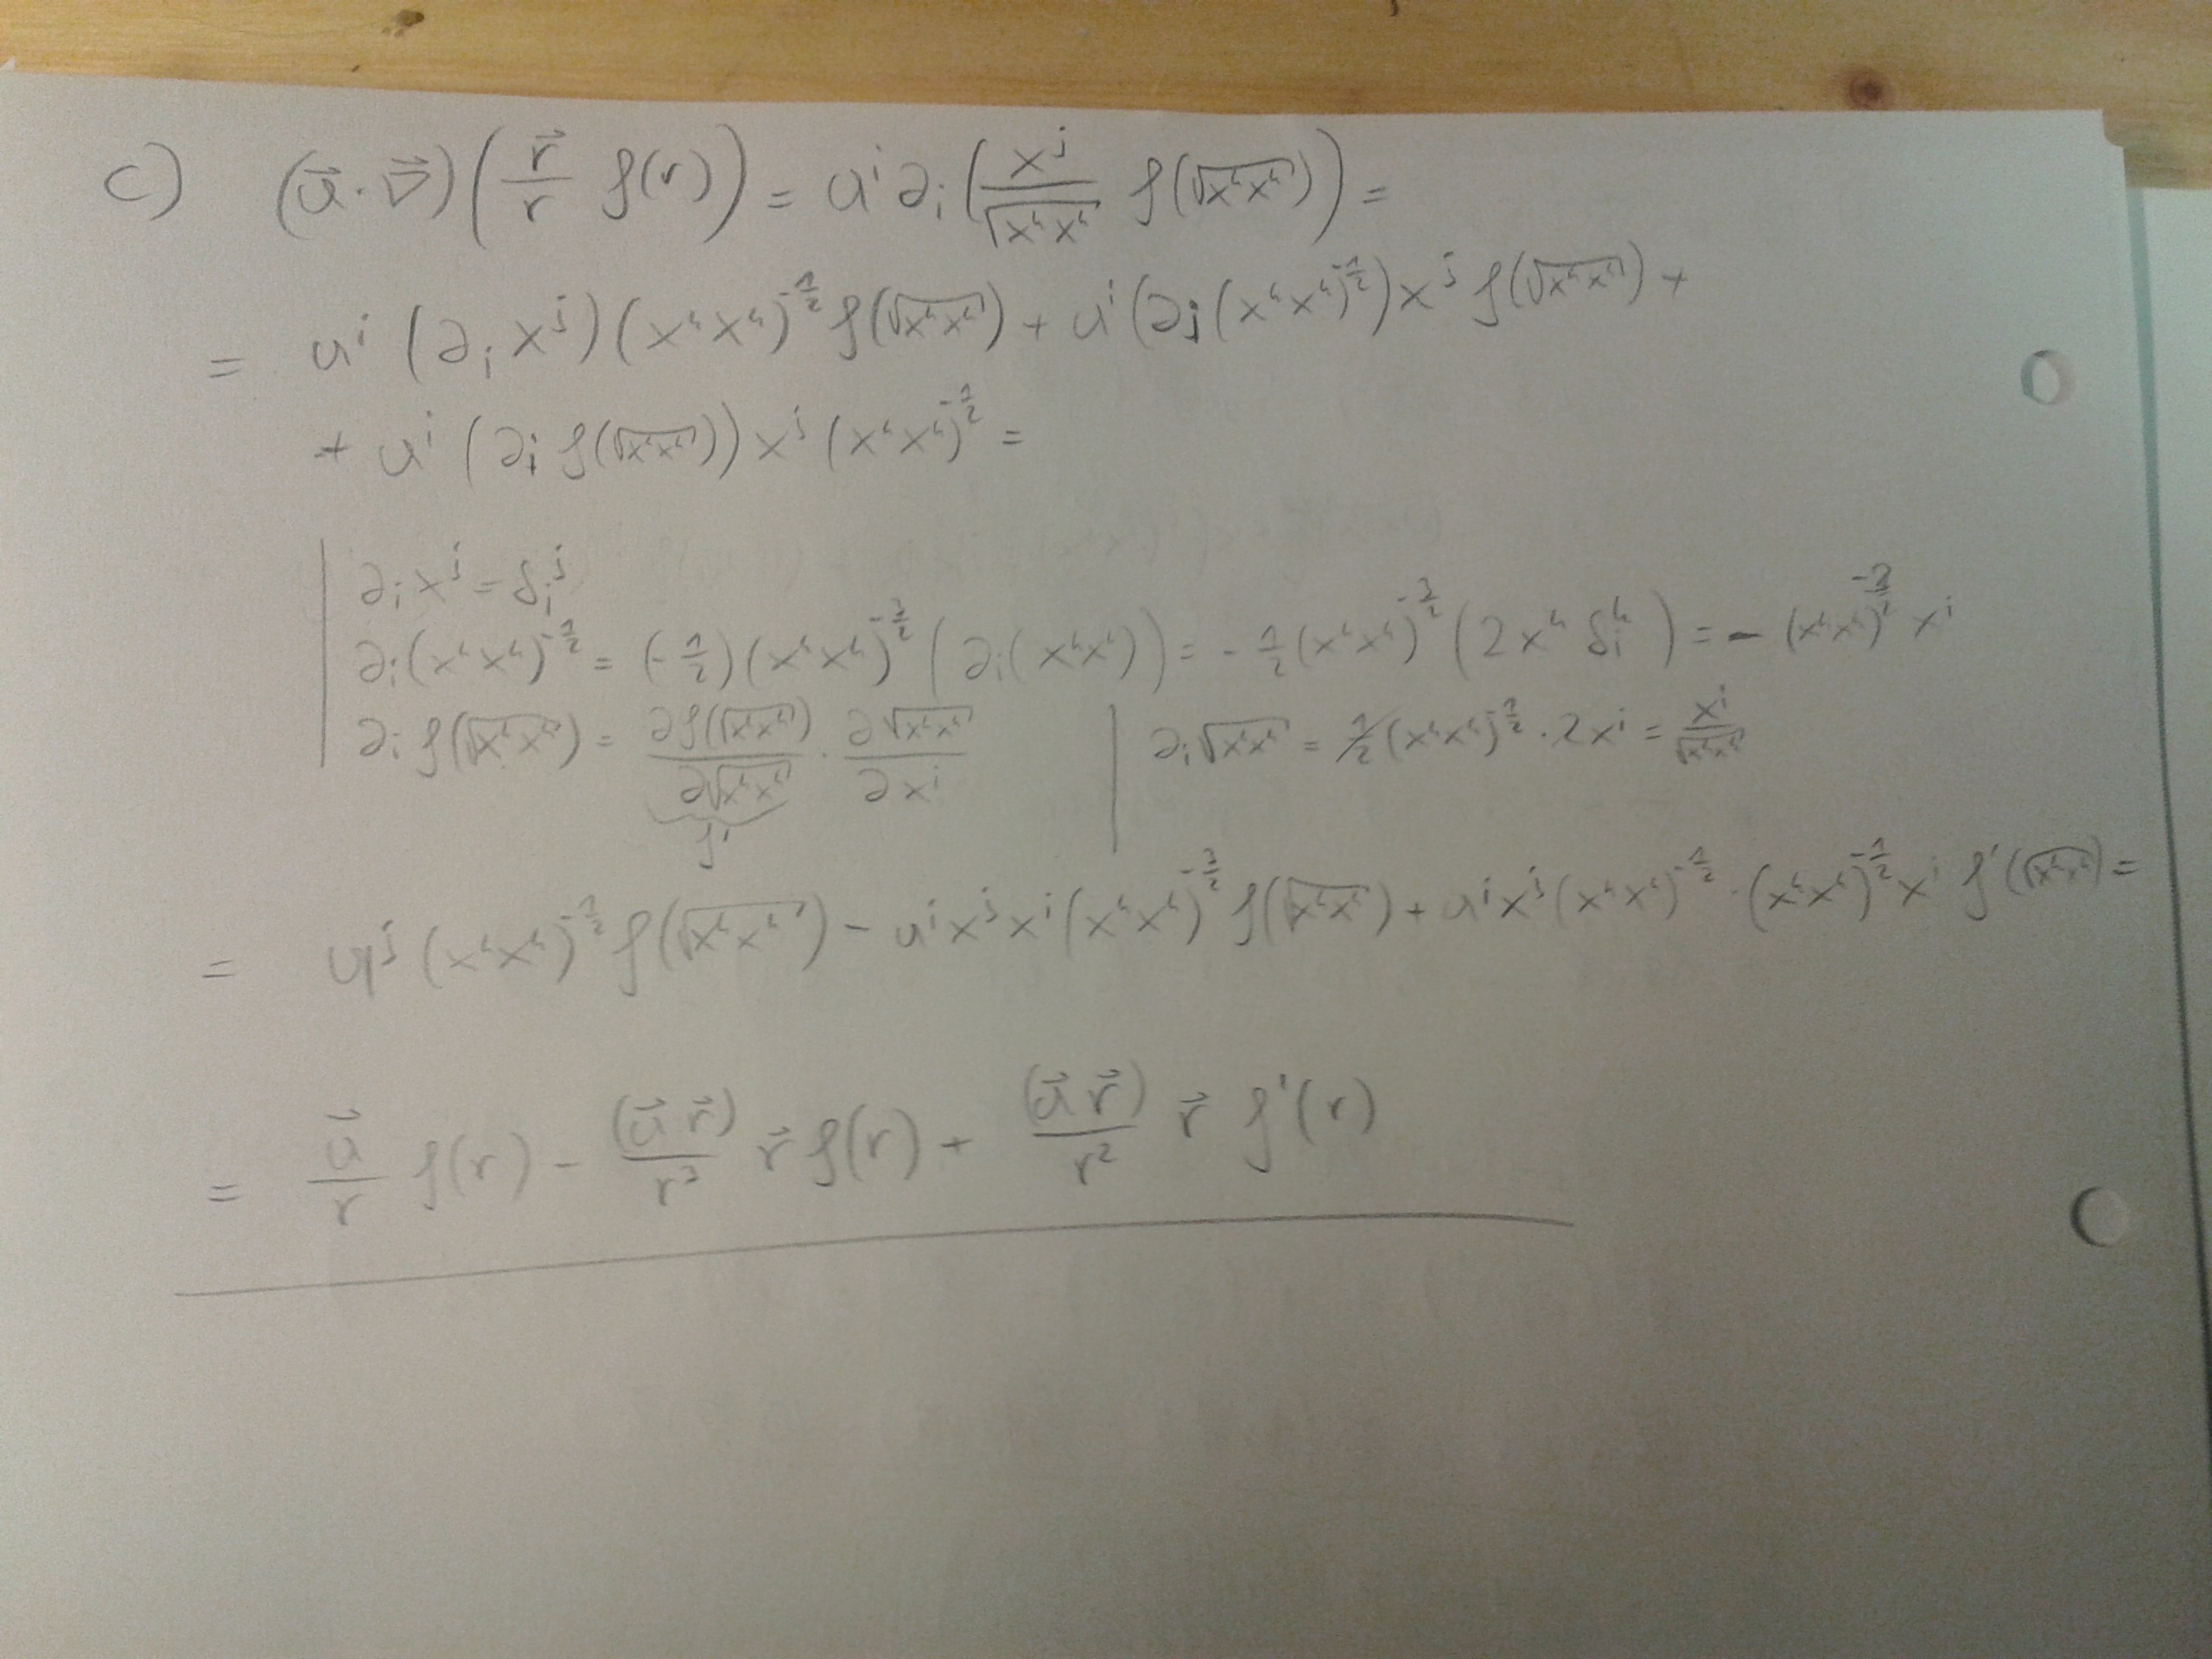 c) (u⃗·∇⃗)(r⃗/r f(r)) = uⁱ∂ᵢ(xʲ/√(xᵏxᵏ) f(√(xᵏxᵏ))) =
= uⁱ(∂ᵢxʲ)(xᵏxᵏ)^(-1/2) f(√(xᵏxᵏ)) + uⁱ(∂ᵢ(xᵏxᵏ)^(-1/2))xʲ f(√(xᵏxᵏ)) +
+ uⁱ(∂ᵢ f(√(xᵏxᵏ)))xʲ(xᵏxᵏ)^(-1/2) =
| ∂ᵢxʲ = δᵢʲ
| ∂ᵢ(xᵏxᵏ)^(-1/2) = (-1/2)(xᵏxᵏ)^(-3/2)(∂ᵢ(xᵏxᵏ)) = -1/2(xᵏxᵏ)^(-3/2)(2xᵏδᵢᵏ) = -(xᵏxᵏ)^(-3/2) xⁱ
| ∂ᵢ f(√(xᵏxᵏ)) = ∂f(√(xᵏxᵏ))/∂√(xᵏxᵏ) · ∂√(xᵏxᵏ)/∂xⁱ | ∂ᵢ√(xᵏxᵏ) = 1/2(xᵏxᵏ)^(-1/2)·2xⁱ = xⁱ/√(xᵏxᵏ)
f'
= uʲ(xᵏxᵏ)^(-1/2) f(√(xᵏxᵏ)) - uⁱxʲxⁱ(xᵏxᵏ)^(-3/2) f(√(xᵏxᵏ)) + uⁱxʲ(xᵏxᵏ)^(-1/2)·(xᵏxᵏ)^(-1/2)xⁱ f'(√(xᵏxᵏ)) =
= u⃗/r f(r) - (u⃗r⃗)/r³ r⃗ f(r) + (u⃗r⃗)/r² r⃗ f'(r)